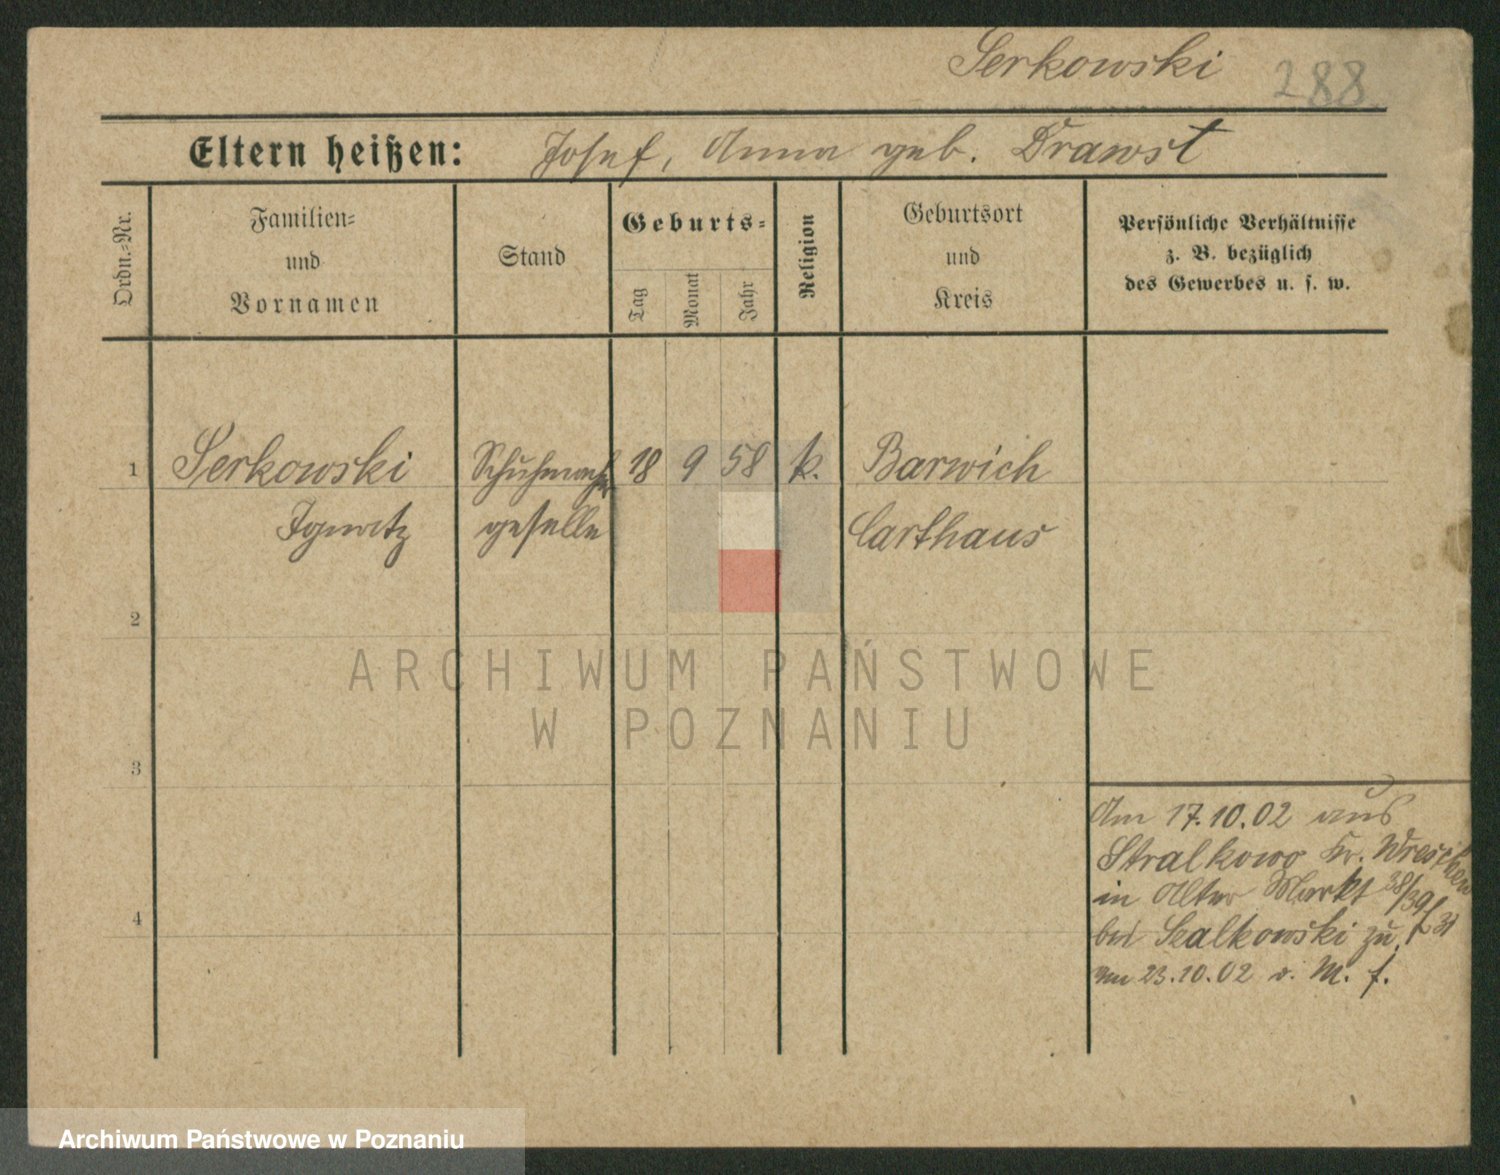 Serkowski 288
Eltern heißen: Josef, Anna geb. Drawst
Ordn.-Nr.
Familien-
und
Vornamen
Stand
Geburts-
Tag
Monat
Jahr
Religion
Geburtsort
und
Kreis
Persönliche Verhältnisse
z. B. bezüglich
des Gewerbes u. s. w.
1 Serkowski Schuhmacher 18 9 58 k. Barwich
Ignatz geselle Carthaus
2
3
4
Am 17.10.02 aus
Stralkowo Kr. Wreschen
in Alter Markt 38/39
bei Szalkowski zu.
am 23.10.02 v. M. f.
ARCHIWUM PAŃSTWOWE
W POZNANIU
Archiwum Państwowe w Poznaniu